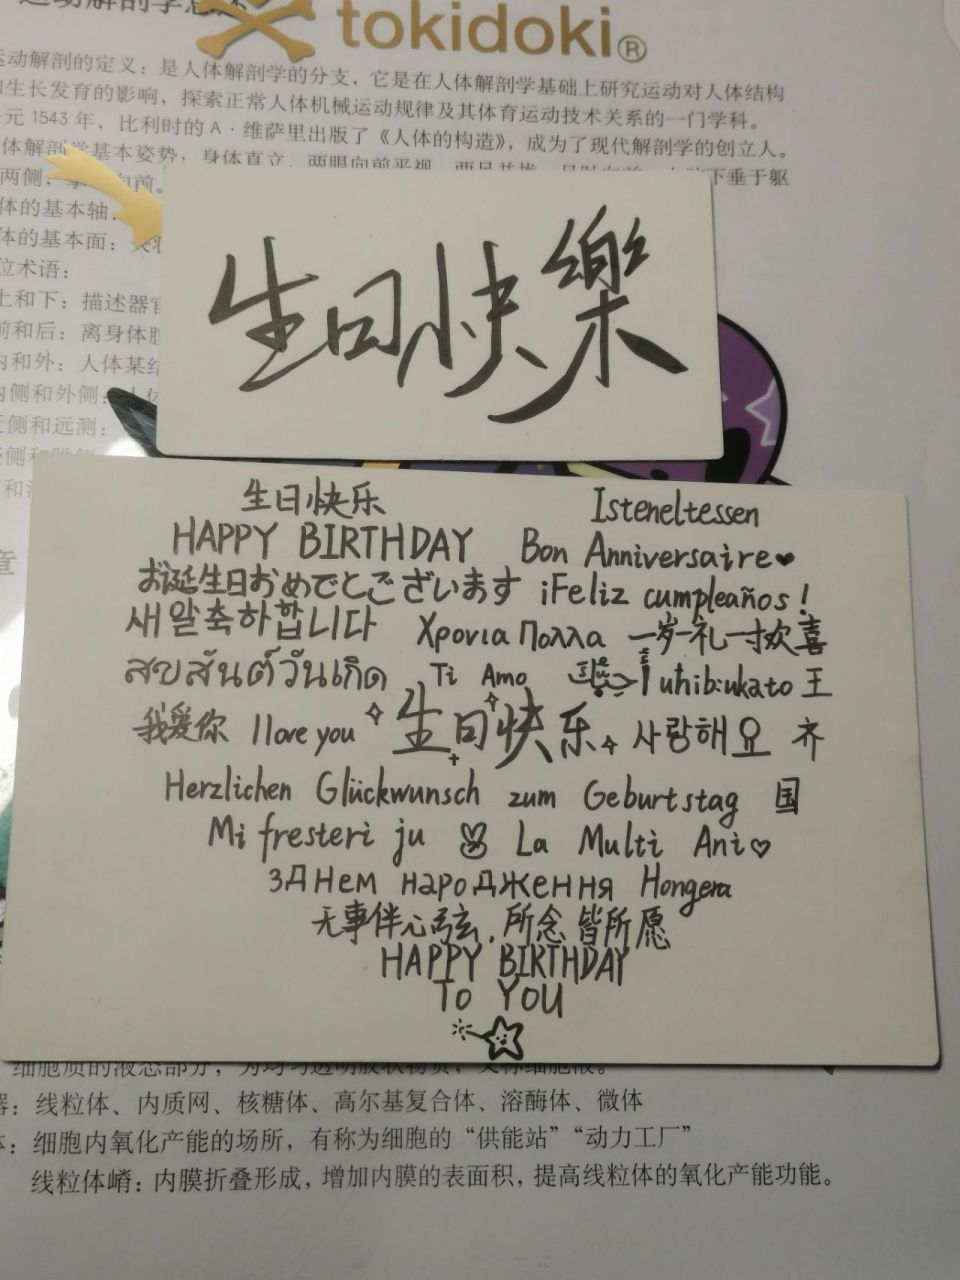 tokidoki®
动解剖的定义：是人体解剖学的分支，它是在人体解剖学基础上研究运动对人体结构
生长发育的影响，探索正常人体机械运动规律及其体育运动技术关系的一门学科。
元 1543 年，比利时的 A · 维萨里出版了《人体的构造》，成为了现代解剖学的创立人。
体解剖学基本姿势：身体直立，两眼向前平视，两足并拢，
下垂于躯
两侧，
向前。
体的基本轴
体的基本面：
位术语：
上和下：描述器官
前和后：离身体腹
内和外：人体某结
内侧和外侧：
侧和远测：
生日快樂
生日快乐 Isteneltessen
HAPPY BIRTHDAY Bon Anniversaire♥
お誕生日おめでとございます ¡Feliz cumpleaños!
새일축하합니다 Χρονια Πολλα 一岁一礼一寸欢喜
สขสันต์วันเกิด Ti Amo uhib:ukato 王
我爱你 I lore you 生日快乐 사랑해요 齐
Herzlichen Glückwunsch zum Geburtstag 国
Mi fresteri ju La Multi Ani♡
з Днем народження Hongera
无事伴心弦，所念皆所愿
HAPPY BIRTHDAY
To YOU
细胞质的液态部分，为均匀透明胶状物质，又称细胞液。
器：线粒体、内质网、核糖体、高尔基复合体、溶酶体、微体
体：细胞内氧化产能的场所，有称为细胞的“供能站”“动力工厂”
线粒体嵴：内膜折叠形成，增加内膜的表面积，提高线粒体的氧化产能功能。